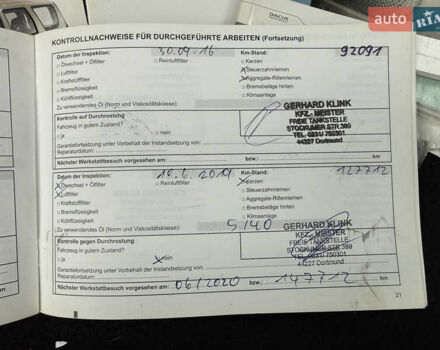 auto RIA.com
DACIA
KONTROLLNACHWEISE FÜR DURCHGEFÜHRTE ARBEITEN (Fortsetzung)
Datum der Inspektion: 30.09.16 Km-Stand: 92091
Ölwechsel + Ölfilter Reinluftfilter Kerzen
Luftfilter Steuerzahnriemen
Kraftstofffilter Aggregate-Rillenriemen
Bremsflüssigkeit Bremsbeläge hinten
Kühlflüssigkeit Klimaanlage
Zu verwendendes Öl (Norm und Viskositätsklasse):
Kontrolle auf Durchrostung
Fahrzeug in gutem Zustand?
ja nein
Garantiefortsetzung unter Vorbehalt der Instandsetzung von:
Reparaturdatum:
GERHARD KLINK
KFZ.- MEISTER
FREIE TANKSTELLE
STOCKUMER STR.389
TEL. 0231/750301
44227 Dortmund
Nächster Werkstattbesuch vorgesehen am: bzw.: km
Datum der Inspektion: 19.6.2019 Km-Stand: 127712
Ölwechsel + Ölfilter Reinluftfilter Kerzen
Luftfilter Steuerzahnriemen
Kraftstofffilter Aggregate-Rillenriemen
Bremsflüssigkeit Bremsbeläge hinten
Kühlflüssigkeit Klimaanlage
Zu verwendendes Öl (Norm und Viskositätsklasse): 5/40
Kontrolle gegen Durchrostung
Fahrzeug in gutem Zustand?
ja nein
Garantiefortsetzung unter Vorbehalt der Instandsetzung von:
Reparaturdatum:
GERHARD KLINK
KFZ.- MEISTER
FREIE TANKSTELLE
STOCKUMER STR.389
TEL. 0231/750301
44227 Dortmund
Nächster Werkstattbesuch vorgesehen am: 06/2020 bzw.: 147712 km
21